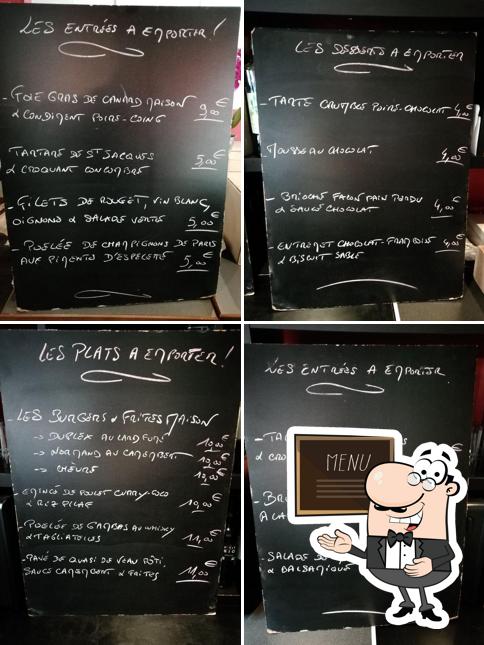 LES ENTRÉES A EMPORTER!
- FOIE GRAS DE CANARD MAISON
& CONDIMENT POIRE-COING 9,00€
TARTARE DE ST JACQUES
& CROQUANT CONCOMBRE 5,00€
- FILETS DE ROUGET, VIN BLANC,
OIGNONS & SALADE VERTE 5,00€
- POELÉE DE CHAMPIGNONS DE PARIS
AUX PIMENTS D'ESPELETTE 5,00€
LES DESSERTS A EMPORTER
- TARTE CRUMBLE POIRE-CHOCOLAT 4,00€
MOUSSE AU CHOCOLAT 4,00€
- BRIOCHE FAÇON PAIN PERDU
& SAUCE CHOCOLAT 4,00€
- ENTREMET CHOCOLAT-FRAMBOISE 4,00€
& BISCUIT SABLÉ
LES PLATS A EMPORTER!
- LES BURGERS & FRITES MAISON
-> DUPLEX AU LARD FUMÉ 10,00€
-> NORMAND AU CAMEMBERT 10,00€
-> CHÈVRE 10,00€
- EMINCÉ DE POULET CURRY-COCO
& RIZ PILAF 10,00€
- POELÉE DE GAMBAS AU WHISKY
& TAGLIATELLES 11,00€
- PAVÉ DE QUASI DE VEAU RÔTI,
SAUCE CAMEMBERT & FRITES 11,00€
LES ENTRÉES A EMPORTER
MENU
- SALADE
& BALSAMIQUE